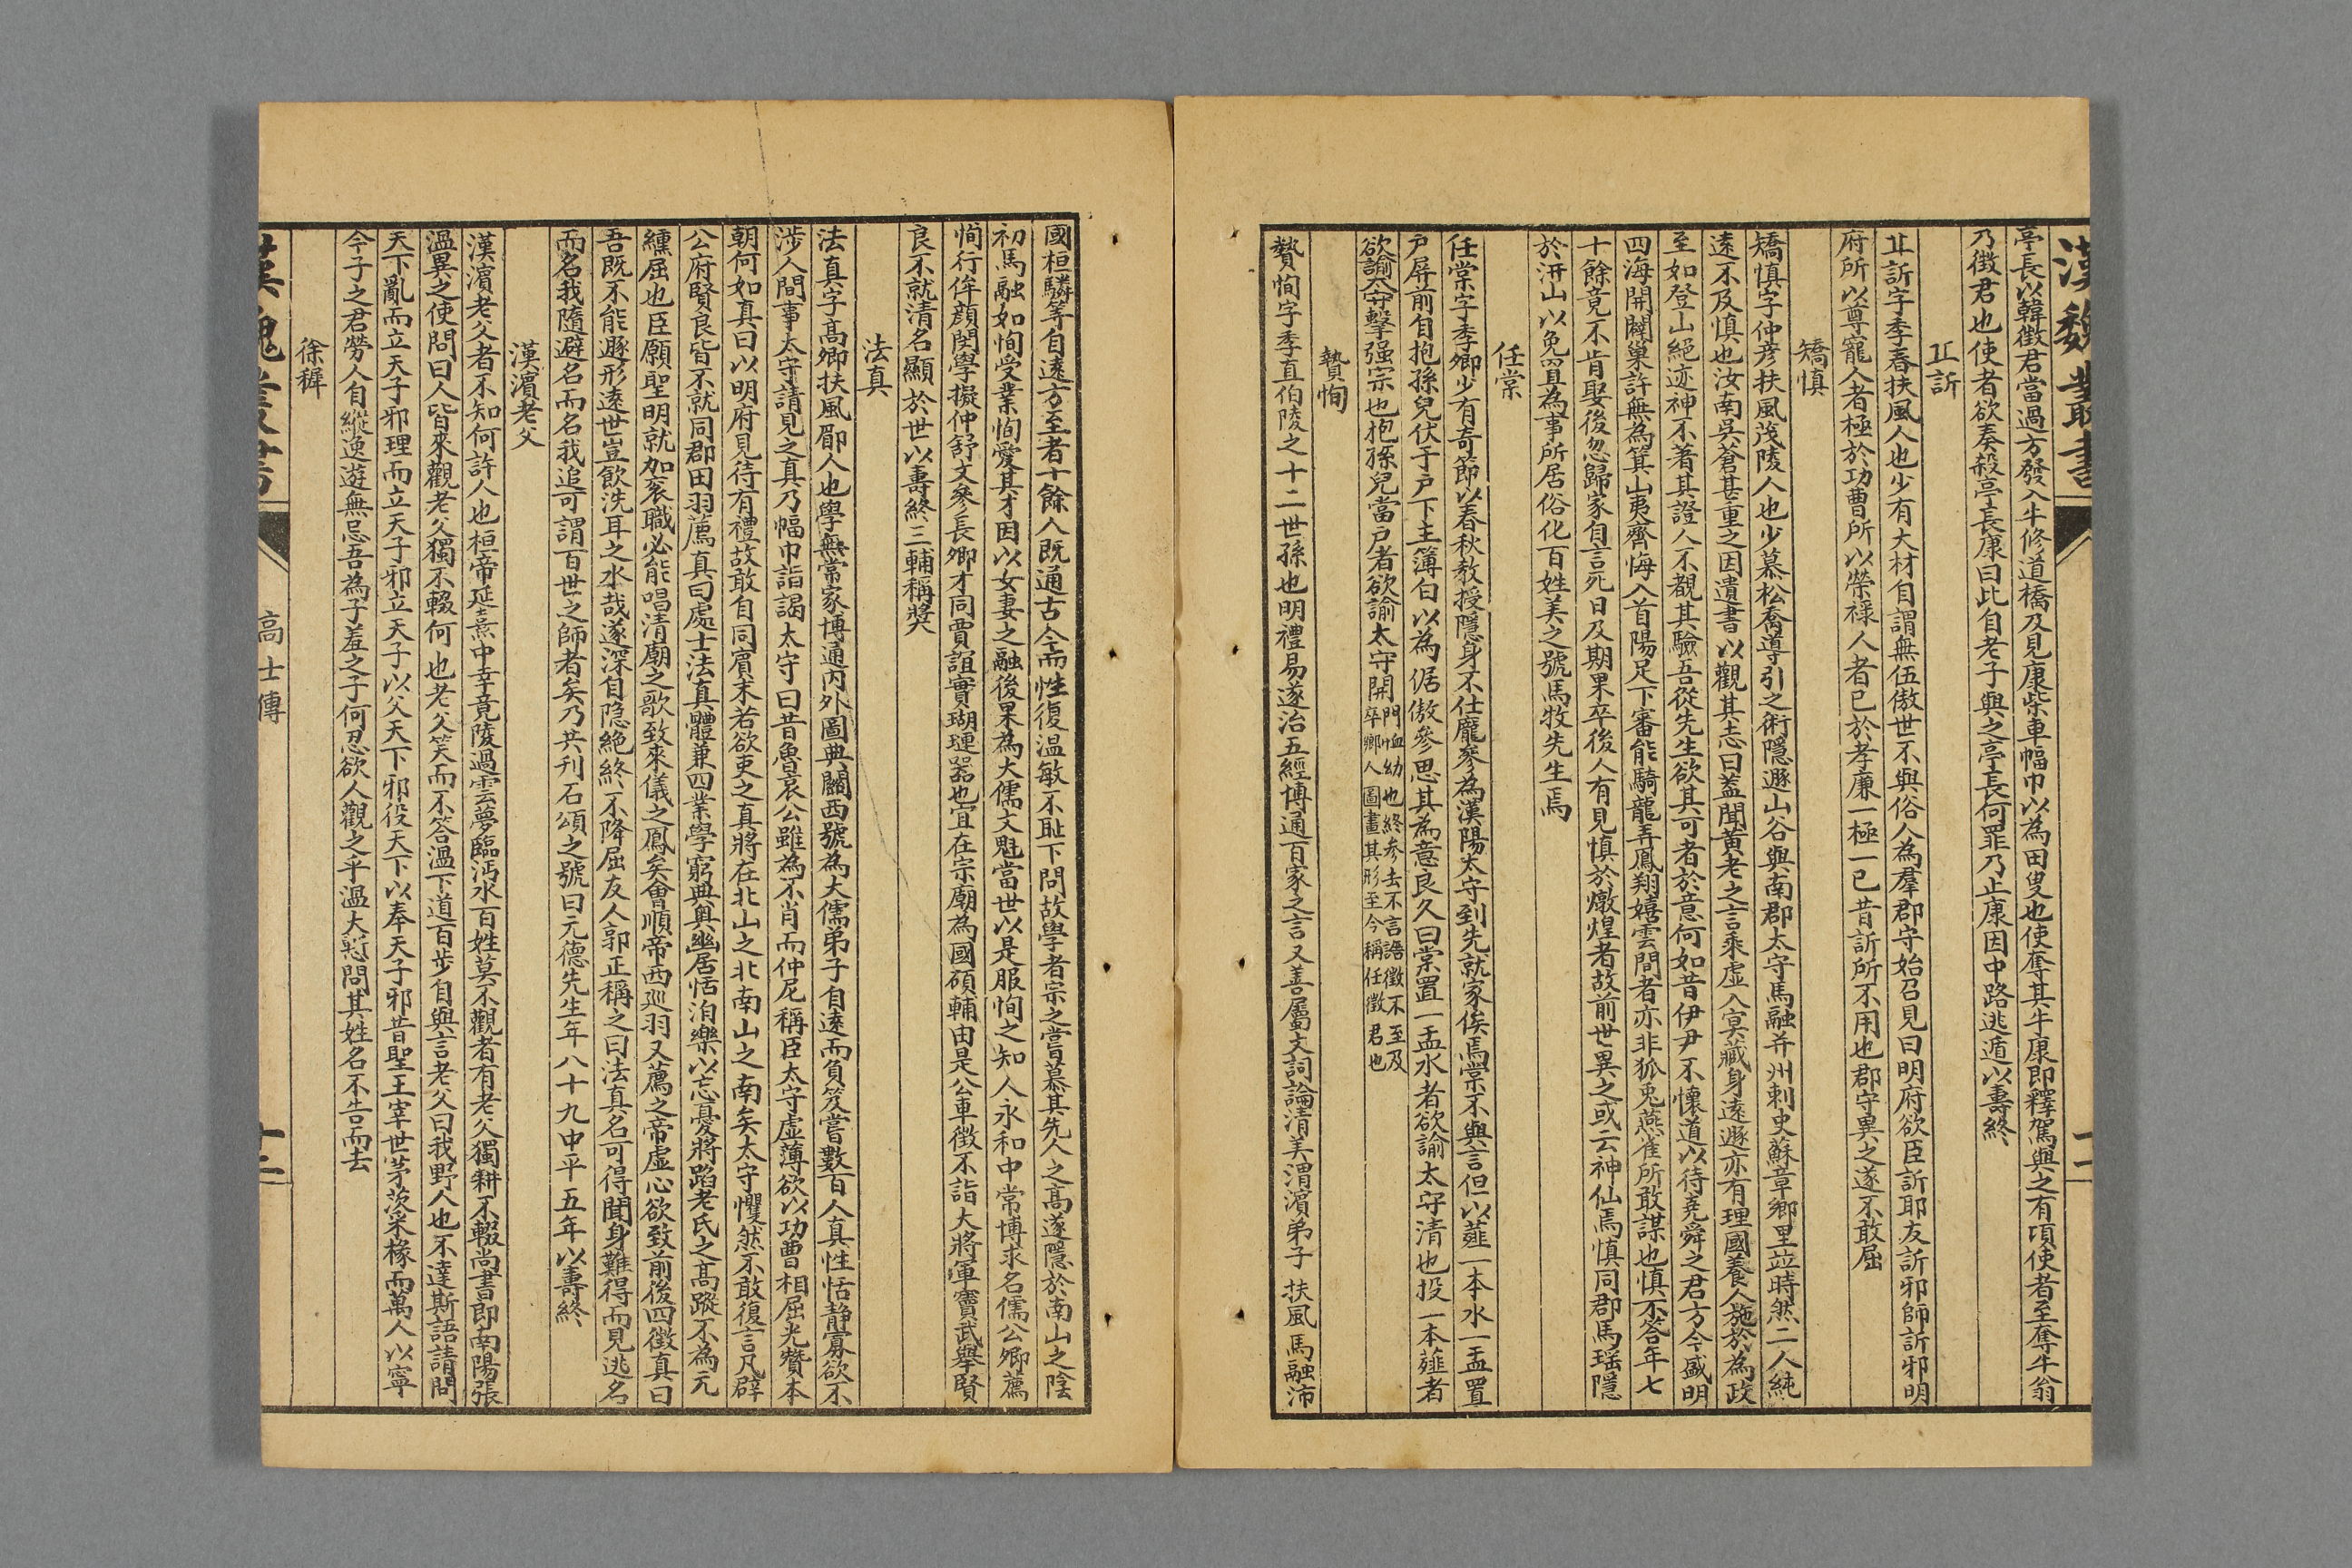 漢魏叢書
亭長以韓徵君當過方發人牛修道橋及見康柴車幅巾以為田叟也使奪其牛康即釋駕與之有頃使者至奪牛翁
乃徵君也使者欲奏殺亭長康曰此自老子與之亭長何罪乃止康因中路逃遁以壽終
丘訢
丘訢字季春扶風人也少有大材自謂無伍傲世不與俗人為羣郡守始召見曰明府欲臣訢耶友訢邪師訢邪明
府所以尊寵人者極於功曹所以榮祿人者已於孝廉一極一已昔訢所不用也郡守異之遂不敢屈
矯慎
矯慎字仲彥扶風茂陵人也少慕松喬導引之術隱遯山谷與南郡太守馬融并州刺史蘇章鄉里並時然二人純
遠不及慎也汝南吳蒼甚重之因遺書以觀其志曰蓋聞黃老之言乘虛入冥藏身遠遯亦有理國養人施於為政
至如登山絕迹神不著其證人不覩其驗吾從先生欲其可者於意何如昔伊尹不懷道以待堯舜之君方今盛明
四海開闢巢許無為箕山夷齊悔入首陽足下審能騎龍弄鳳翔嬉雲間者亦非狐兔燕雀所敢謀也慎不答年七
十餘竟不肯娶後忽歸家自言死日及期果卒後人有見慎於燉煌者故前世異之或云神仙焉慎同郡馬瑶隱
於汧山以兔罝為事所居俗化百姓美之號馬牧先生焉
任棠
任棠字季卿少有奇節以春秋教授隱身不仕龐參為漢陽太守到先就家俟焉棠不與言但以薤一本水一盂置
戶屏前自抱孫兒伏于戶下主簿白以為倨傲參思其為意良久曰棠置一盂水者欲諭太守清也投一本薤者
欲諭太守擊强宗也抱孫兒當戶者欲諭太守開門恤幼也終參去不言語徵不至及
卒鄉人圖畫其形至今稱任徵君也
摯恂
摯恂字季直伯陵之十二世孫也明禮易遂治五經博通百家之言又善屬文詞論清美渭濱弟子扶風馬融沛
國桓驎等自遠方至者十餘人既通古今而性復溫敏不恥下問故學者宗之嘗慕其先人之高遂隱於南山之陰
初馬融如恂受業恂愛其才因以女妻之融後果為大儒文魁當世以是服恂之知人永和中常博求名儒公卿薦
恂行侔顏閔學擬仲舒文參長卿才同賈誼實瑚璉器也宜在宗廟為國碩輔由是公車徵不詣大將軍竇武舉賢
良不就清名顯於世以壽終三輔稱獎
法真
法真字高卿扶風郿人也學無常家博通內外圖典關西號為大儒弟子自遠而負笈嘗數百人真性恬靜寡欲不
涉人間事太守請見之真乃幅巾詣謁太守曰昔魯哀公雖為不肖而仲尼稱臣太守虛薄欲以功曹相屈光贊本
朝何如真曰以明府見待有禮故敢自同賓末若欲吏之真將在北山之北南山之南矣太守懼然不敢復言凡辟
公府賢良皆不就同郡田羽薦真曰處士法真體兼四業學窮典奧幽居恬泊樂以忘憂將蹈老氏之高蹤不為元
纁屈也臣願聖明就加袞職必能唱清廟之歌致來儀之鳳矣會順帝西巡羽又薦之帝虛心欲致前後四徵真曰
吾既不能遯形遠世豈飲洗耳之水哉遂深自隱絕終不降屈友人郭正稱之曰法真名可得聞身難得而見逃名
而名我隨避名而名我追可謂百世之師者矣乃共刊石頌之號曰元德先生年八十九中平五年以壽終
漢濱老父
漢濱老父者不知何許人也桓帝延熹中幸竟陵過雲夢臨沔水百姓莫不觀者有老父獨耕不輟尚書郎南陽張
溫異之使問曰人皆來觀老父獨不輟何也老父笑而不答溫下道百步自與言老父曰我野人也不達斯語請問
天下亂而立天子邪理而立天子邪立天子以父天下邪役天下以奉天子邪昔聖王宰世茅茨采椽而萬人以寧
今子之君勞人自縱逸遊無忌吾為子羞之子何忍欲人觀之乎溫大慙問其姓名不告而去
徐稺
漢魏叢書
高士傳
十二